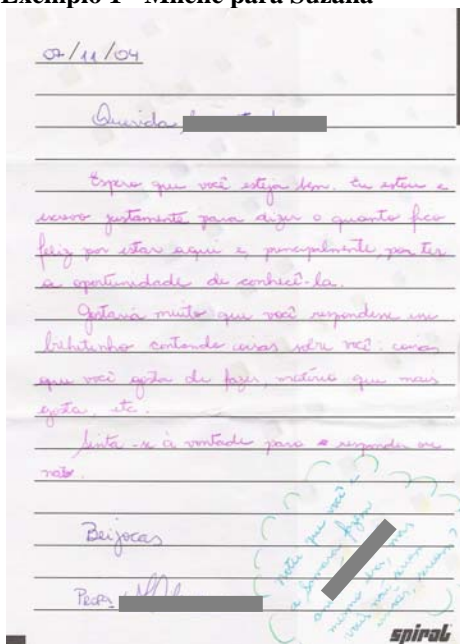 Exemplo 1 - Milene para Suzana
07/11/04
Querida
Espero que você esteja bem. Eu estou e
escrevo justamente para dizer o quanto fico
feliz por estar aqui e, principalmente, por ter
a oportunidade de conhecê-la.
Gostaria muito que você respondesse esse
bilhetinho contando coisas sobre você: coisas
que você gosta de fazer, matéria que mais
gosta, etc.
Sinta-se à vontade para responder ou
não.
Beijocas
Profa
Notei que você e
a Samara fazem
mesmo dia, mas
vocês não
spiral